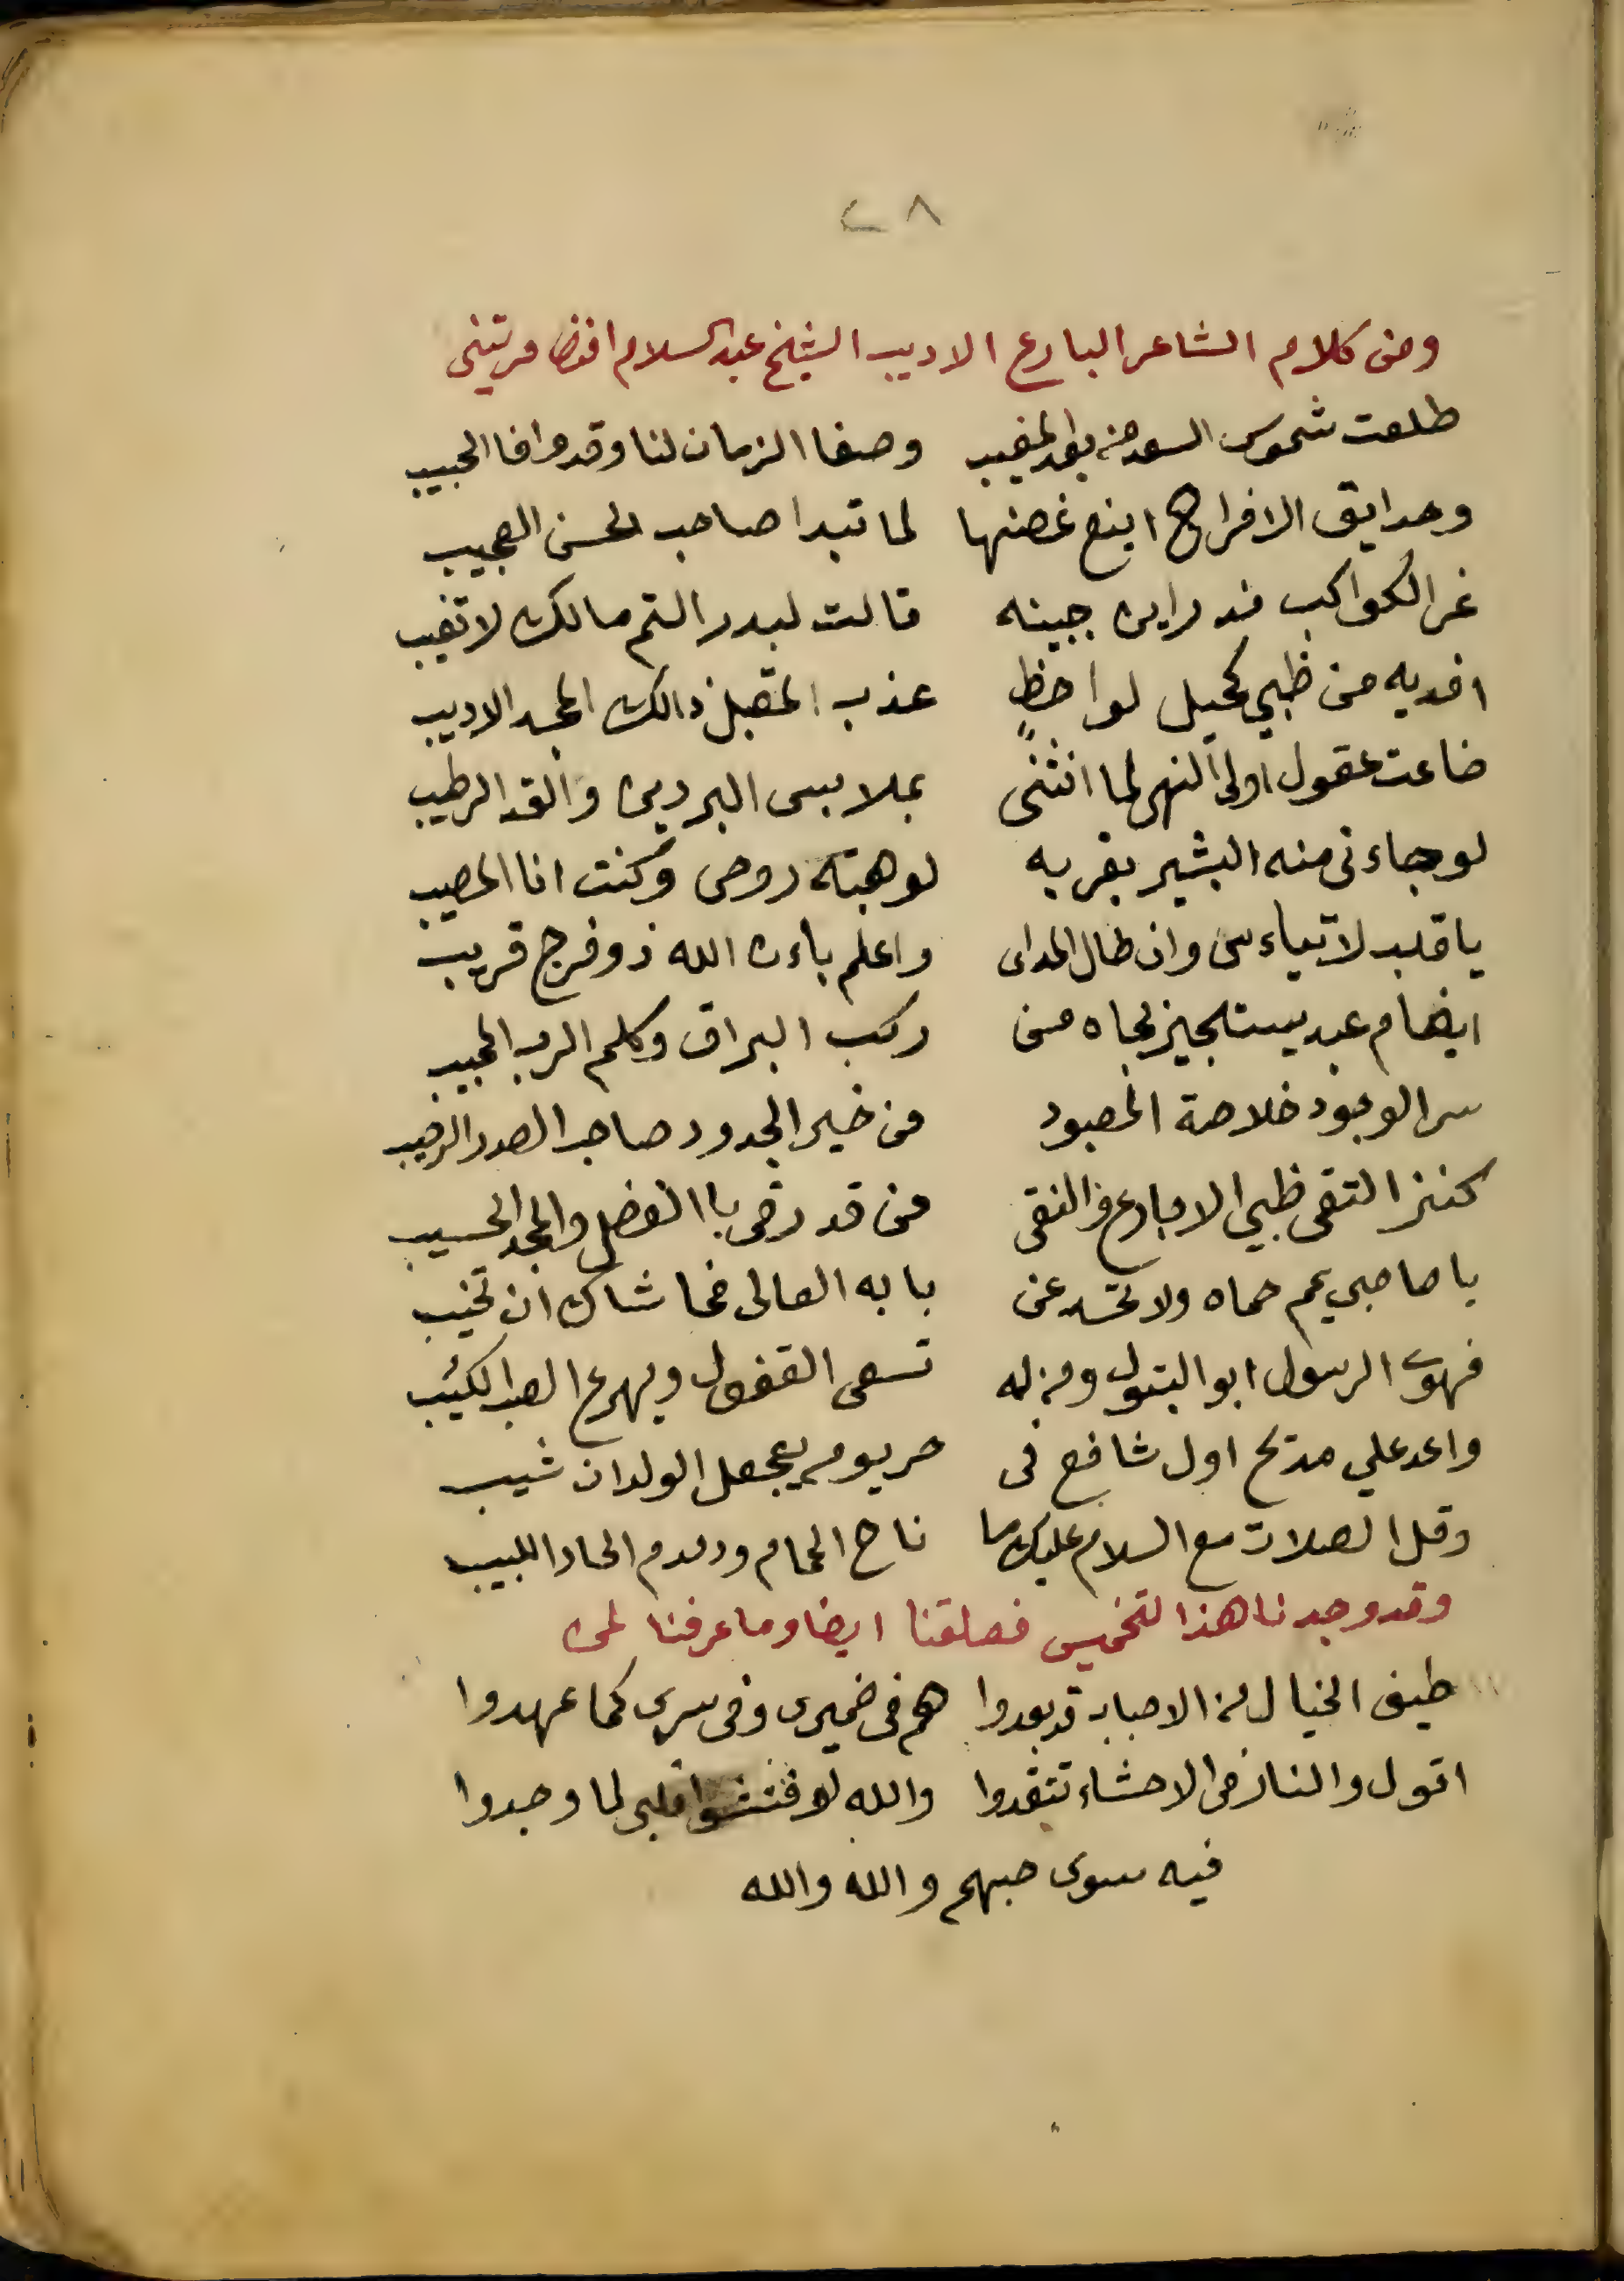 ٢٨
ومن كلام الشاعر البارع الاديب الشيخ عبد السلام افندي مرتيني
طلعت شموس السعد من بعد المغيب وصفا الزمان لنا وقد وافا الحبيب
وحدايق الافراح اينع غصنها لما تبدا صاحب الحسن العجيب
غر الكواكب مذ راين جبينه قالت لبدر التم مالك لا تغيب
افديه من ظبي كحيل لواحظٍ عذب المقبل ذالك الاديب
ضاعت عقول اولي النهى لما انثنى بملابس البردين والقد الرطيب
لو جاءني منه البشير بقربه لوهبته روحى وكنت انا المصيب
يا قلب لا تياءس وان طال المداى واعلم باءن الله ذو فرج قريب
ايضام عبد يستجيز بجاه من ركب البراق وكلم الرب المجيب
سر الوجود خلاصة من خير الجدود صاحب الصدر الرحيب
كنز التقى ظبي الاجارع والنقى من قد رقى باالفضل والمجد الحسيب
يا صاحبي يمم حماه ولا تحد عن بابه العالى فحاشاك ان تخيب
فهوى الرسول ابو البتول ومن له تسعى القفول ويهرع الصب الكئيب
واعد علي مديح اول شافع فى حر يوم يجعل الولدان شيب
وقل الصلات مع السلام عليك ما ناح الحمام ودمدم الحاد اللبيب
وقد وجدنا هذا لتخميس فعلقنا ايضا وما عرفنا لمن
طيف الخيال من الاحباب قد بعدوا هم فى ضميرى وفى سرى كما عهدوا
اقول والنار فى الاحشاء تتقدوا والله لو فتشوا قلبى لما وجدوا
فيه سوى حبهم والله والله